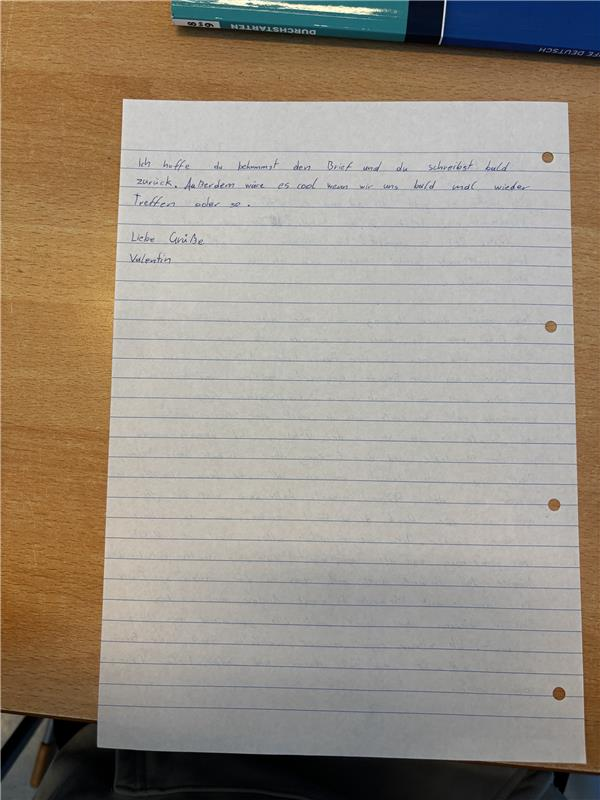 DURCHSTARTEN
6-8
FE DEUTSCH
Ich hoffe du bekommst den Brief und du schreibst bald
zurück. Außerdem wäre es cool wenn wir uns bald mal wieder
Treffen oder so.
Liebe Grüße
Valentin